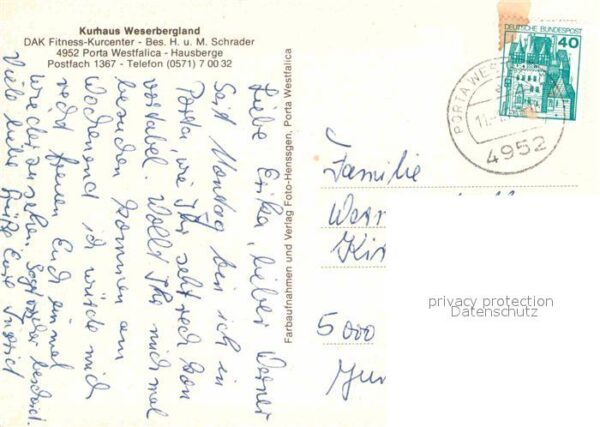 Kurhaus Weserbergland
DAK Fitness-Kurcenter - Bes. H. u. M. Schrader
4952 Porta Westfalica - Hausberge
Postfach 1367 - Telefon (0571) 7 00 32
Liebe Erika, lieber Werner
Seit Montag bin ich in
Porta, wie Ihr seht red kon
vortabel. Wollt Ihr mich mal
besuchen kommen am
Wochenend ich würde mich
recht freuen Euch einmal
wieder zu sehen. bescheid.
Viele liebe Grüße Eure Ingrid
Farbaufnahmen und Verlag Foto-Henssgen, Porta Westfalica
DEUTSCHE BUNDESPOST
40
PORTA WEST
4952
Familie
Wern
Kir
5000
privacy protection
Datenschutz